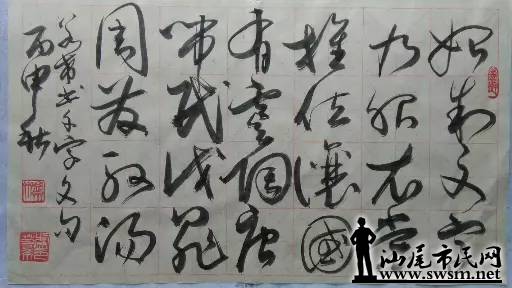 始制文字
乃服衣裳
推位讓國
有虞陶唐
吊民伐罪
周發殷湯
书千字文句
丙申秋
汕尾市民网
www.swsm.net